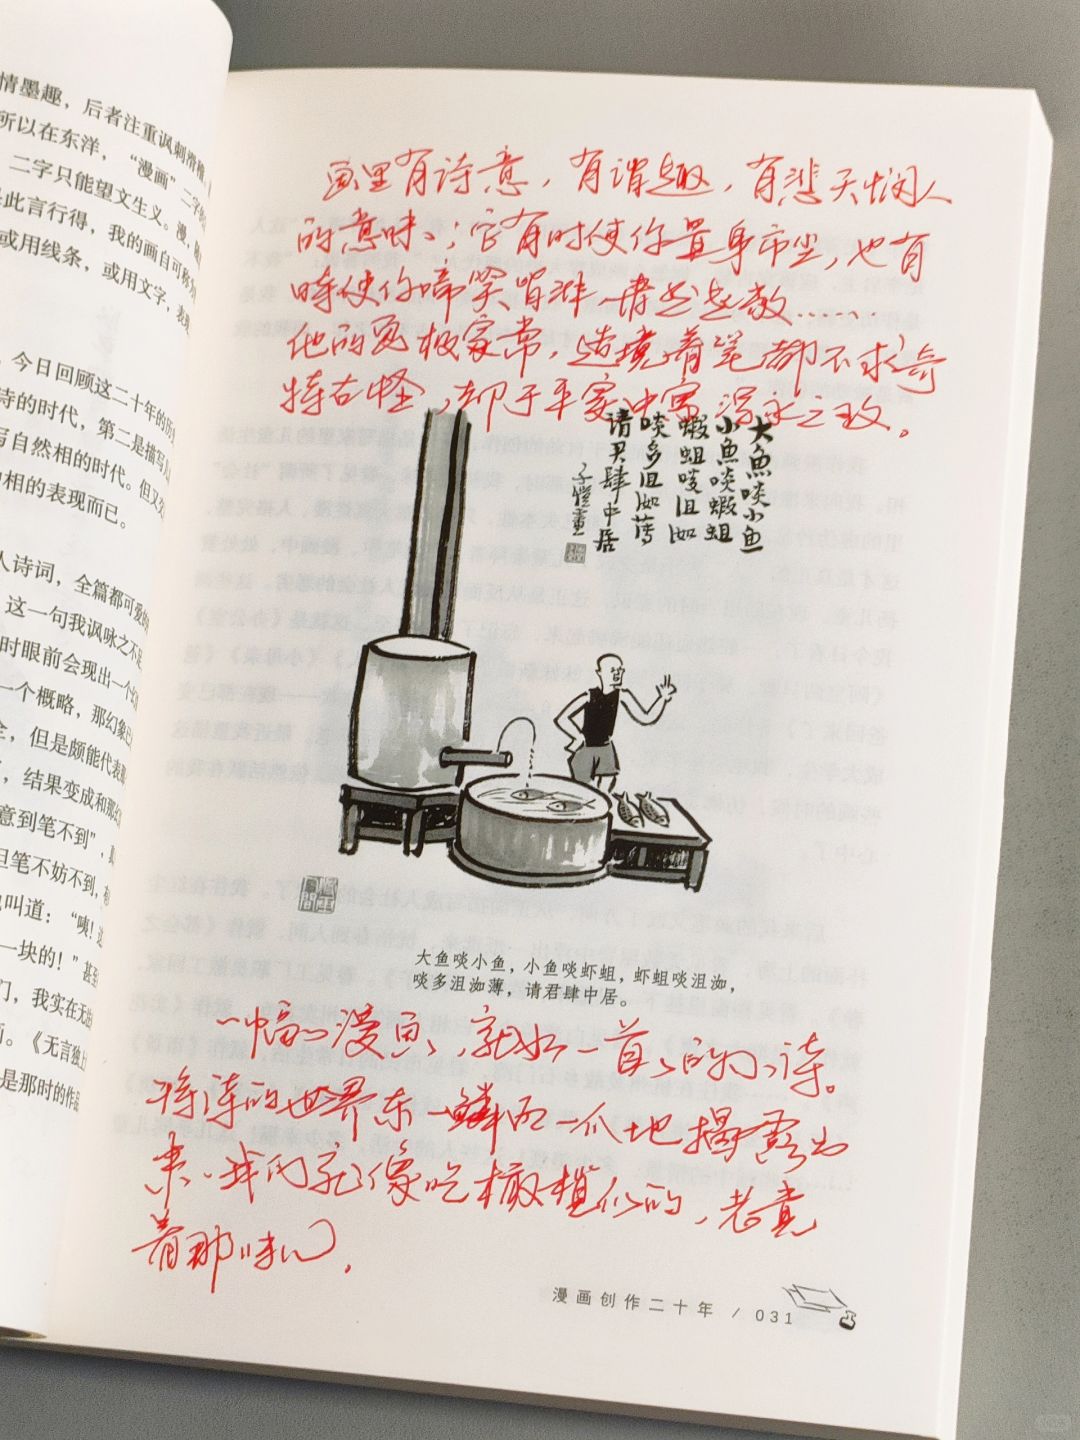 情墨趣，后者注重讽刺滑稽
所以在东洋，“漫画”二字
二字只能望文生义。漫，
此言行得，我的画自可称为
或用线条，或用文字，表现
今日回顾这二十年的历
诗的时代，第二是描写儿
写自然相的时代。但又
相的表现而已。
人诗词，全篇都可爱的
这一句我讽咏之不
时眼前会现出一个
一个概略，那幻象已
全，但是颇能代表
，结果变成和那
意到笔不到”，
但笔不妨不到，
也叫道：“咦！这
一块的！”甚至
们，我实在无
。《无言独上
是那时的作品
画里有诗意，有谐趣，有悲天悯人
的意味；它有时使你置身市尘，也有
时使你啼笑皆非、肃然起敬……
他的画极家常，造境着笔都不求奇
特古怪，却于平实中寓深永之致。
大魚啖小魚
小魚啖蝦蛆
蝦蛆啖沮洳
啖多沮洳薄
请君肆中居
子愷畫
大鱼啖小鱼，小鱼啖虾蛆，虾蛆啖沮洳，
啖多沮洳薄，请君肆中居。
一幅幅漫画，就如一首首的小诗。
将诗的世界东一鳞西一爪地揭露出
来、我们就像吃橄榄似的，老觉
着那味儿。
漫画创作二十年 / 031